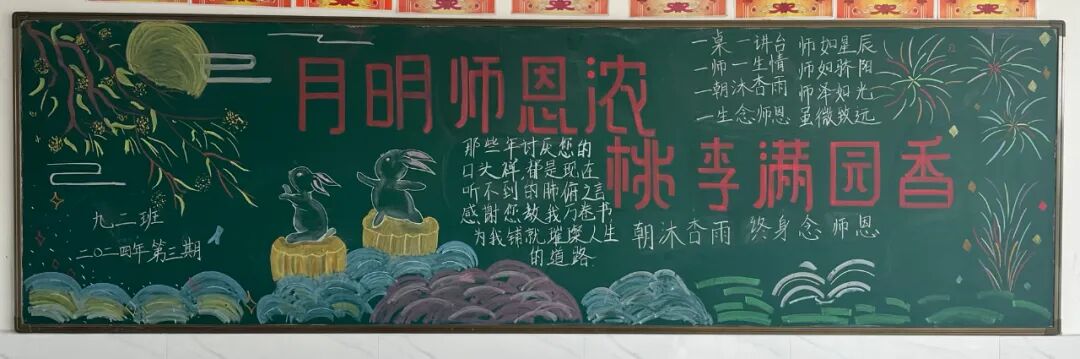 月明师恩浓
桃李满园香
一桌一讲台 师如星辰
一师一生情 师如骄阳
一朝沐杏雨 师泽如光
一生念师恩 虽微致远
那些年讨厌您的
口头禅,都是现在
听不到的肺俯之言
感谢您教我万卷书
为我铺就璀璨人生
的道路
朝沐杏雨 终身念师恩
九二班
二〇二四年第三期